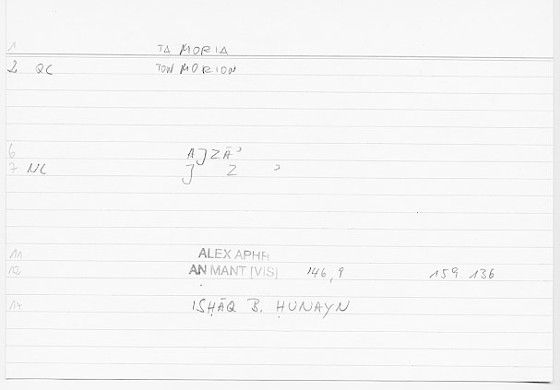 1 TA MORIA
2 QC TON MORION
6 AJZĀʾ
7 NC J Z ʾ
11 ALEX APHR
12 AN MANT [VIS] 146,9 159.136
14 ISḤĀQ B. ḤUNAYN